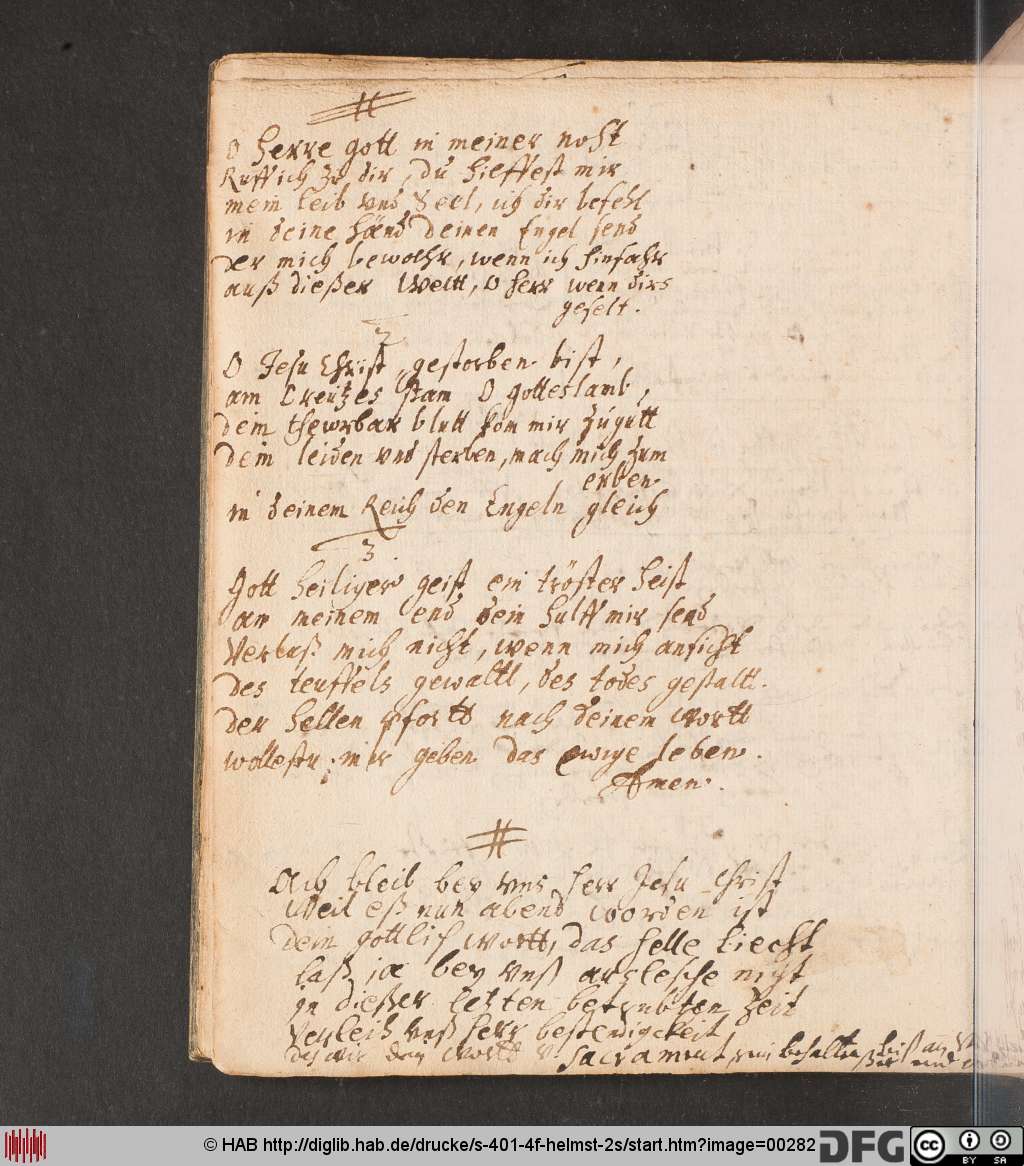 O Herre gott in meiner noht
Ruff ich zu dir, du hieffest mir
mein leib vnd Seel, ich dir befehl
in deine händ deinen Engel send
der mich bewohr, wenn ich hinfahr
auß dießer Weltt, O herr wenn dirs
gefelt.
2
O Jesu Christ, gestorben bist,
am Creutzes stam O gotteslamb,
dein thewrbar blutt kom mir zugutt
dein leiden vnd sterben, mach mich zum
erben
in deinem Reich den Engeln gleich
3
Gott heiliger geist ein tröster heist
an meinem end dein hulff mir send
Verlaß mich nicht, wenn mich anficht
des teuffels gewaltt, des todes gestaltt.
der hellen pfortt nach deinem wortt
wollestu mir geben das ewige leben.
Amen.
Ach bleib bey vns herr Jesu Christ
Weil eß nun abend worden ist
dein gottlich wortt, das helle Liecht
laß ja bey vnß auslesche nicht
in dießer letzten betrubten Zeit
Verleih vnß herr bestendigkeit
das wir dein wortt v Sacrament rein behalten
© HAB http://diglib.hab.de/drucke/s-401-4f-helmst-2s/start.htm?image=00282
DFG
cc BY SA